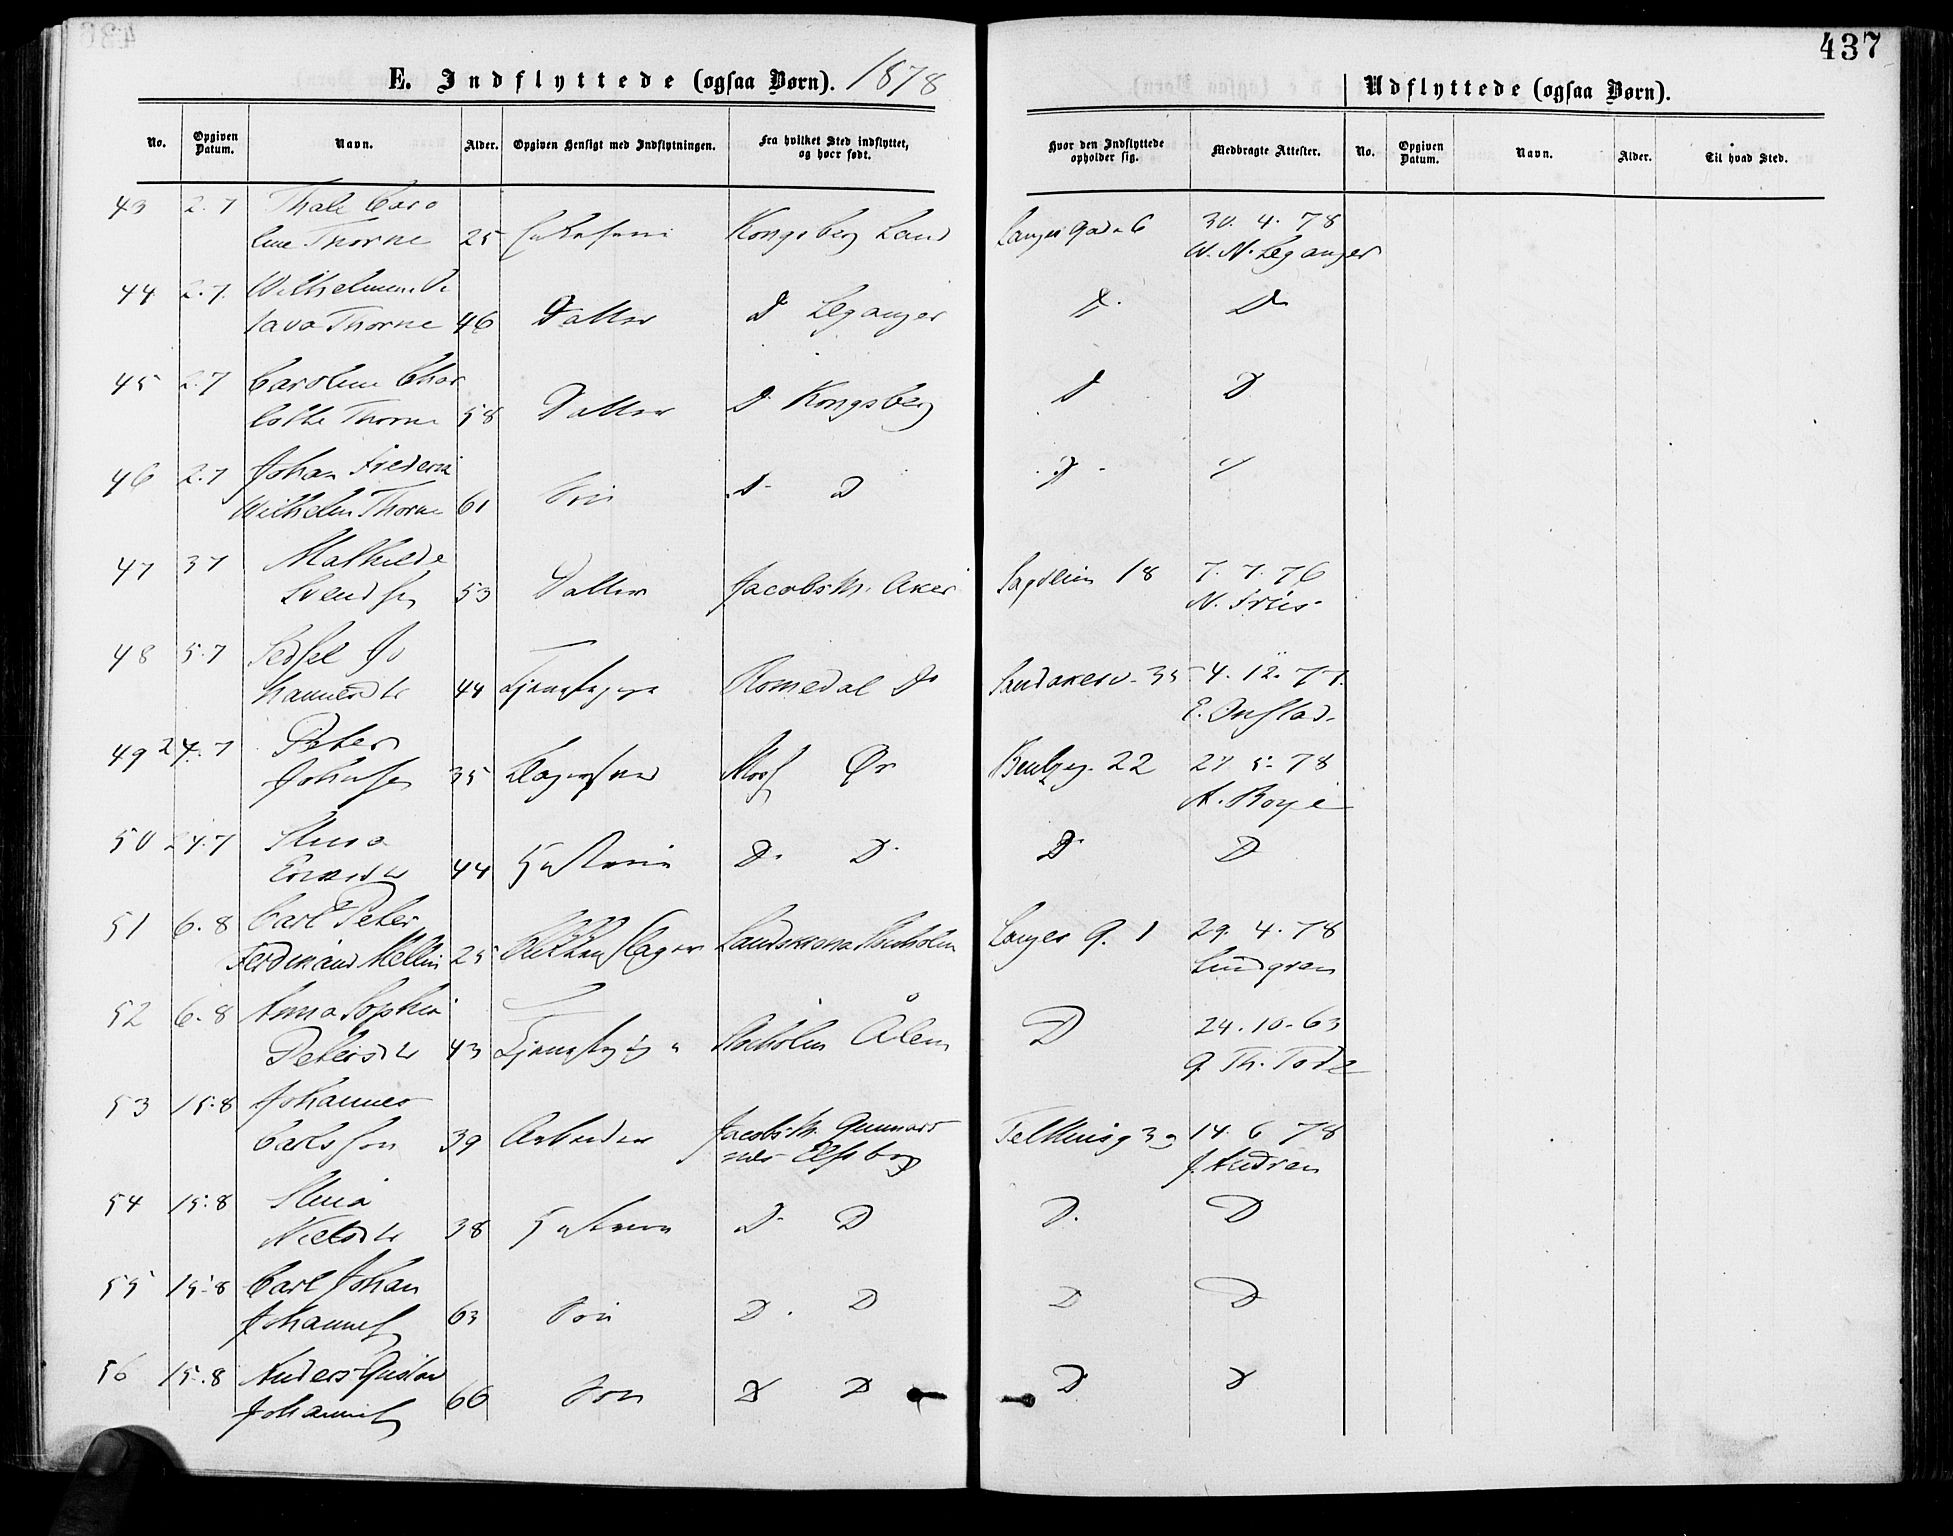 437
E. Indflyttede (ogsaa Børn). 1878
Udflyttede (ogsaa Børn).
No. Opgiven Datum. Navn. Alder. Opgiven Hensigt med Indflytningen. Fra hvilket Sted indflyttet, og hvor født. Hvor den Indflyttede opholder sig. Medbragte Attester. No. Opgiven Datum. Navn. Alder. Til hvad Sted.
43 2.7 Thale Caro
line Thorne 25 Kongsberg Land Langes Gade 6 30. 4. 78
Leganger
44 2.7. Wilhelmine
Thorne 46 Datter D Leganger D. D
45 2.7 Caroline Char
lotte Thorne 58 Datter D Kongsberg D D
46 2.7 Johan Frederik
Wilhelm Thorne 61 Søn D. D D.
47 3 7 Mathilde
Svends 53 Datter Jacobs M. Aker 18 7. 7. 76
N. Friis.
48 5.7 Sedsel Jo
hannesdtr 44 Tjenestepige Romedal D Sandakerv. 35 4. 12. 77.
E. Onstad.
49 24.7 Peter
Johns 35 Moss Bentzeg. 22 27 5. 78
50 24.7 Stina
44 Hustru D. D. D. D
51 6.8 Carl Peter
Ferdinand Mellin 25 Landskrona Stocholm Langes G. 1 29. 4. 78
Lindgren
52 6.8 Anna Sophia
Petersdtr 43 Tjenestepige Stocholm Ålem D 24.10.63
G. Th. Tode
53 15.8 Johannes
Carlsson 39 Arbeider Jacobs M. Gunnars
næs Elfsborg 14. 6 78
J. Andren
54 15.8 Stina
Nielsdtr 38 Hustru D. D D. D
55 15.8 Carl Johan
Johannes 63 Søn D. D D D
56 15.8 Anders Gustav
Johannes 66 Søn D D D D